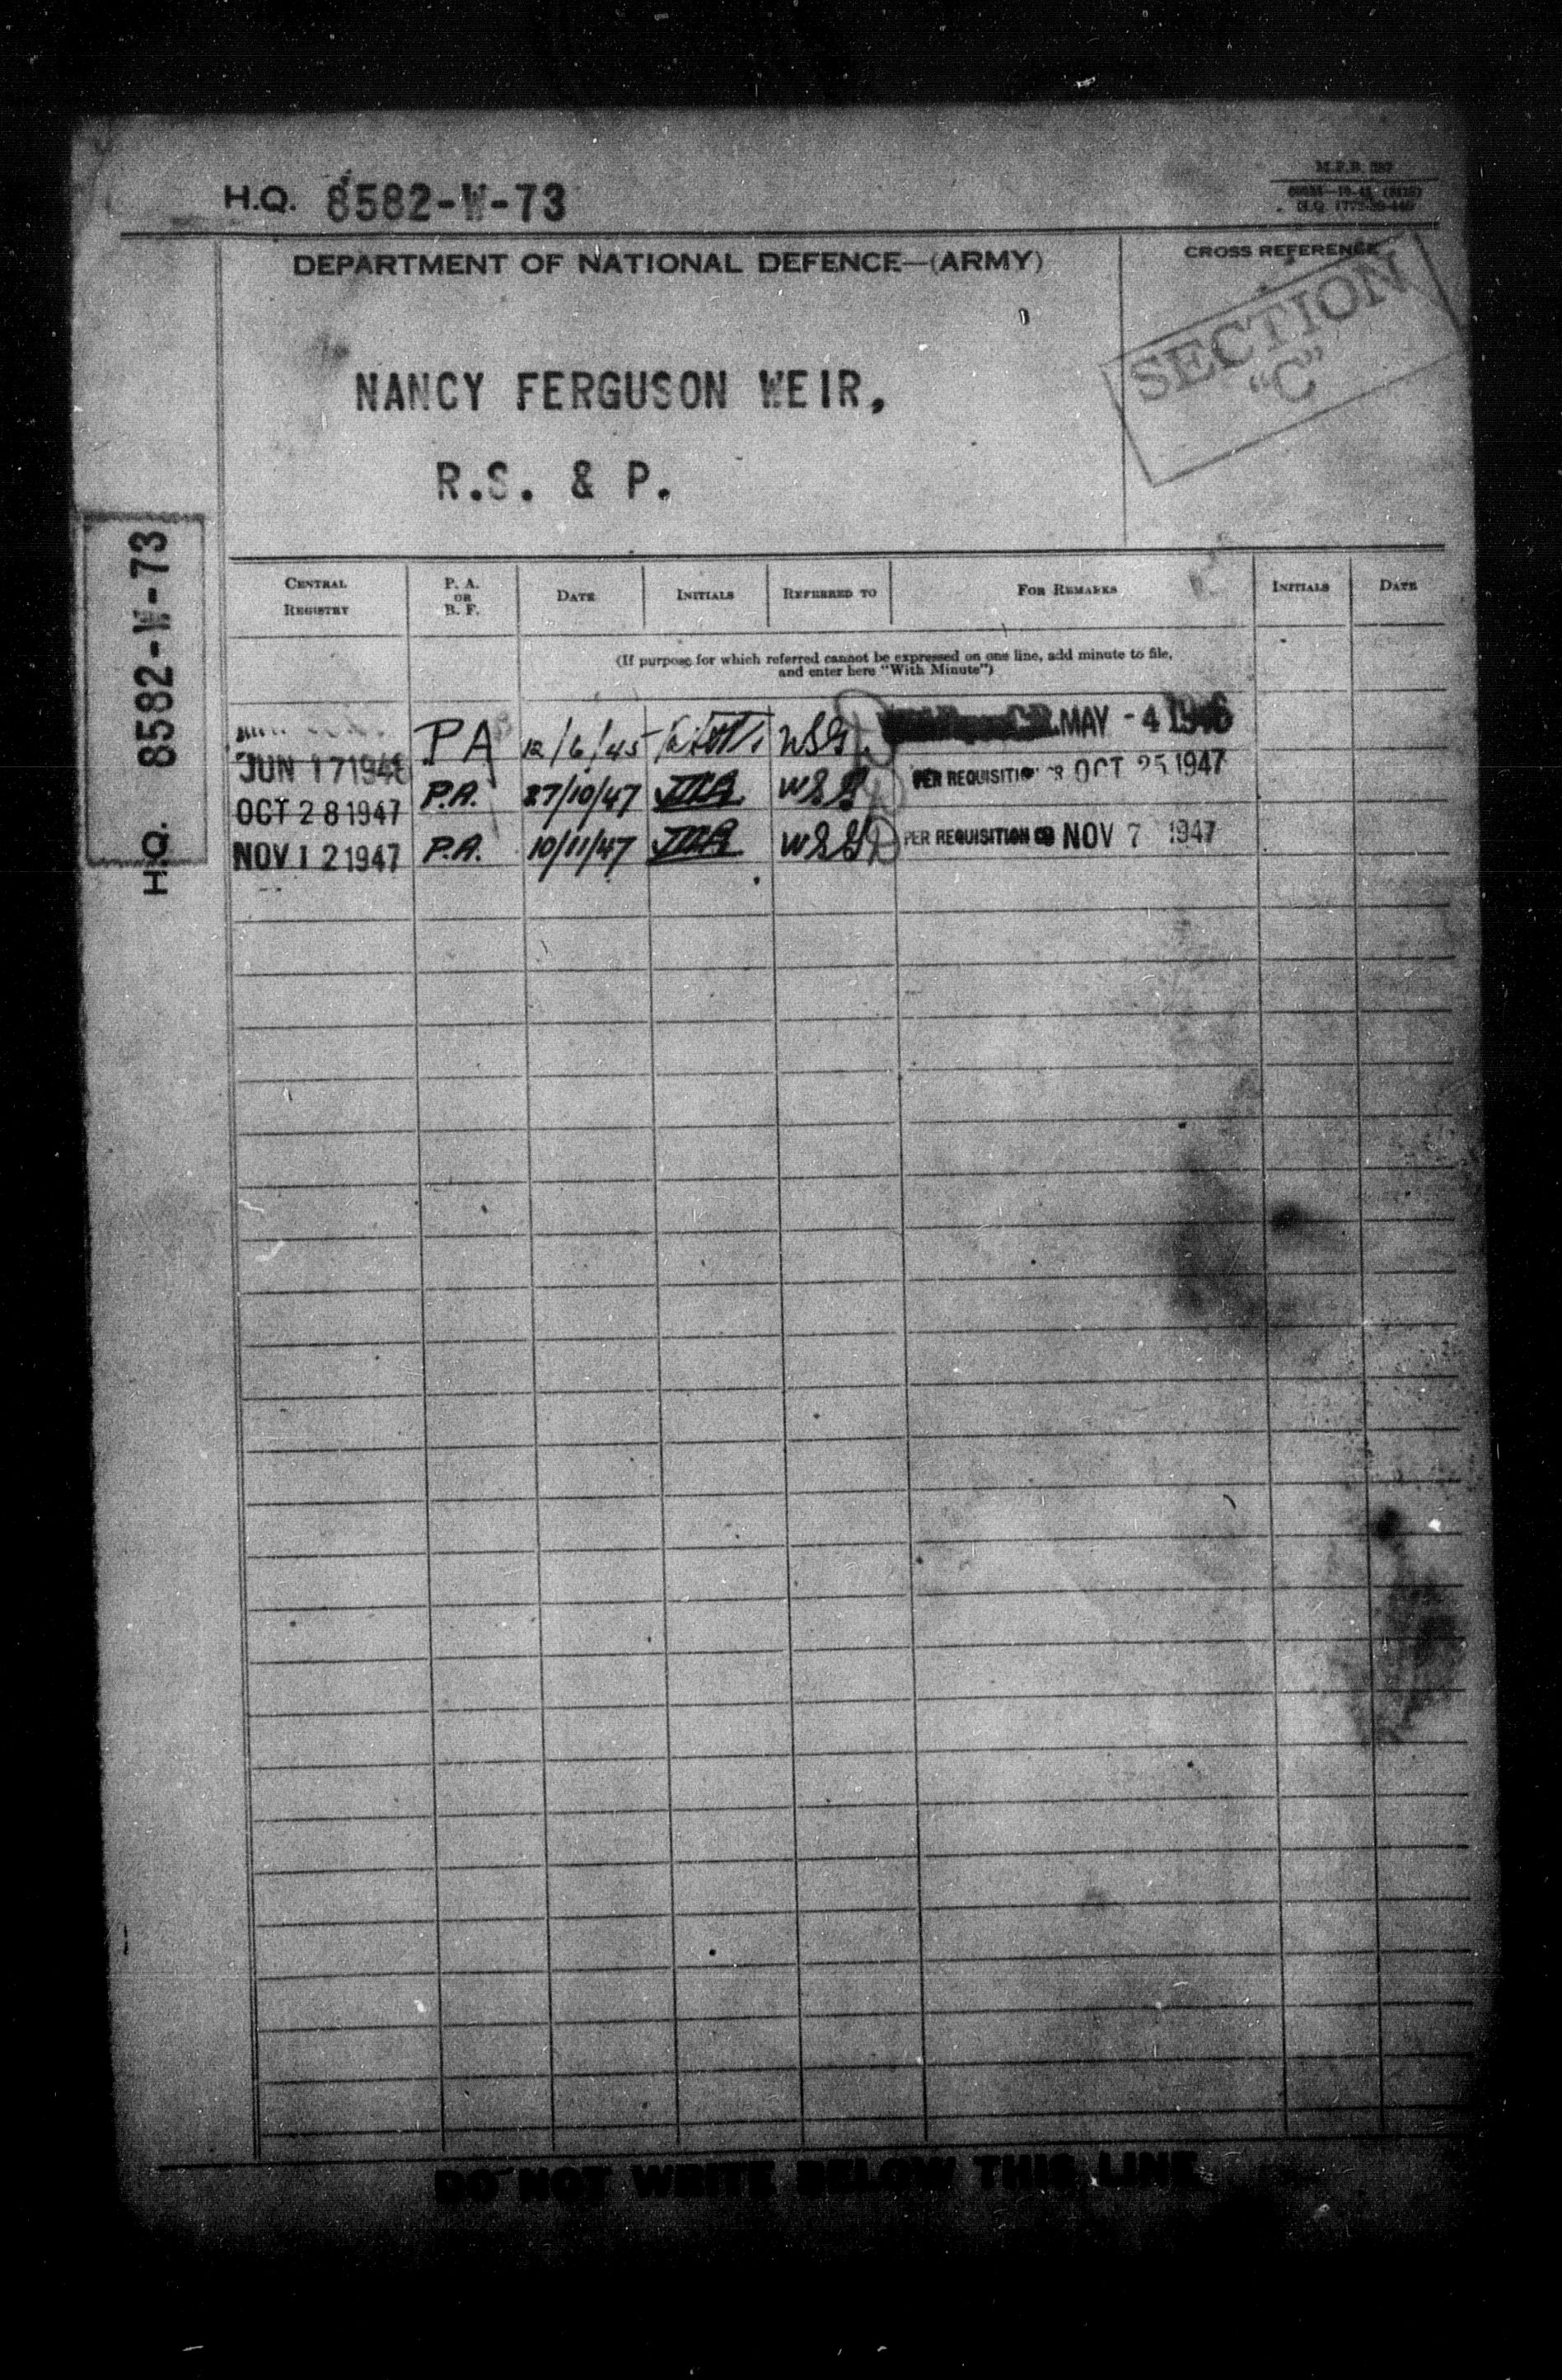 M.F.B. 387
H.Q. 8582-W-73
DEPARTMENT OF NATIONAL DEFENCE—(ARMY)
CROSS REFERENCE
SECTION
"C"
NANCY FERGUSON WEIR,
R.S. & P.
H.Q. 8582-W-73
CENTRAL REGISTRY
P. A. OR B. F.
DATE
INITIALS
REFERRED TO
FOR REMARKS
INITIALS
DATE
(If purpose for which referred cannot be expressed on one line, add minute to file,
and enter here "With Minute")
PA 12/6/45 WSG MAY - 4 1946
JUN 17 1946
P.A. 27/10/47 WSG PER REQUISITION OCT 25 1947
OCT 28 1947
NOV 12 1947 P.A. 10/11/47 WSG PER REQUISITION NOV 7 1947
DO NOT WRITE BELOW THIS LINE